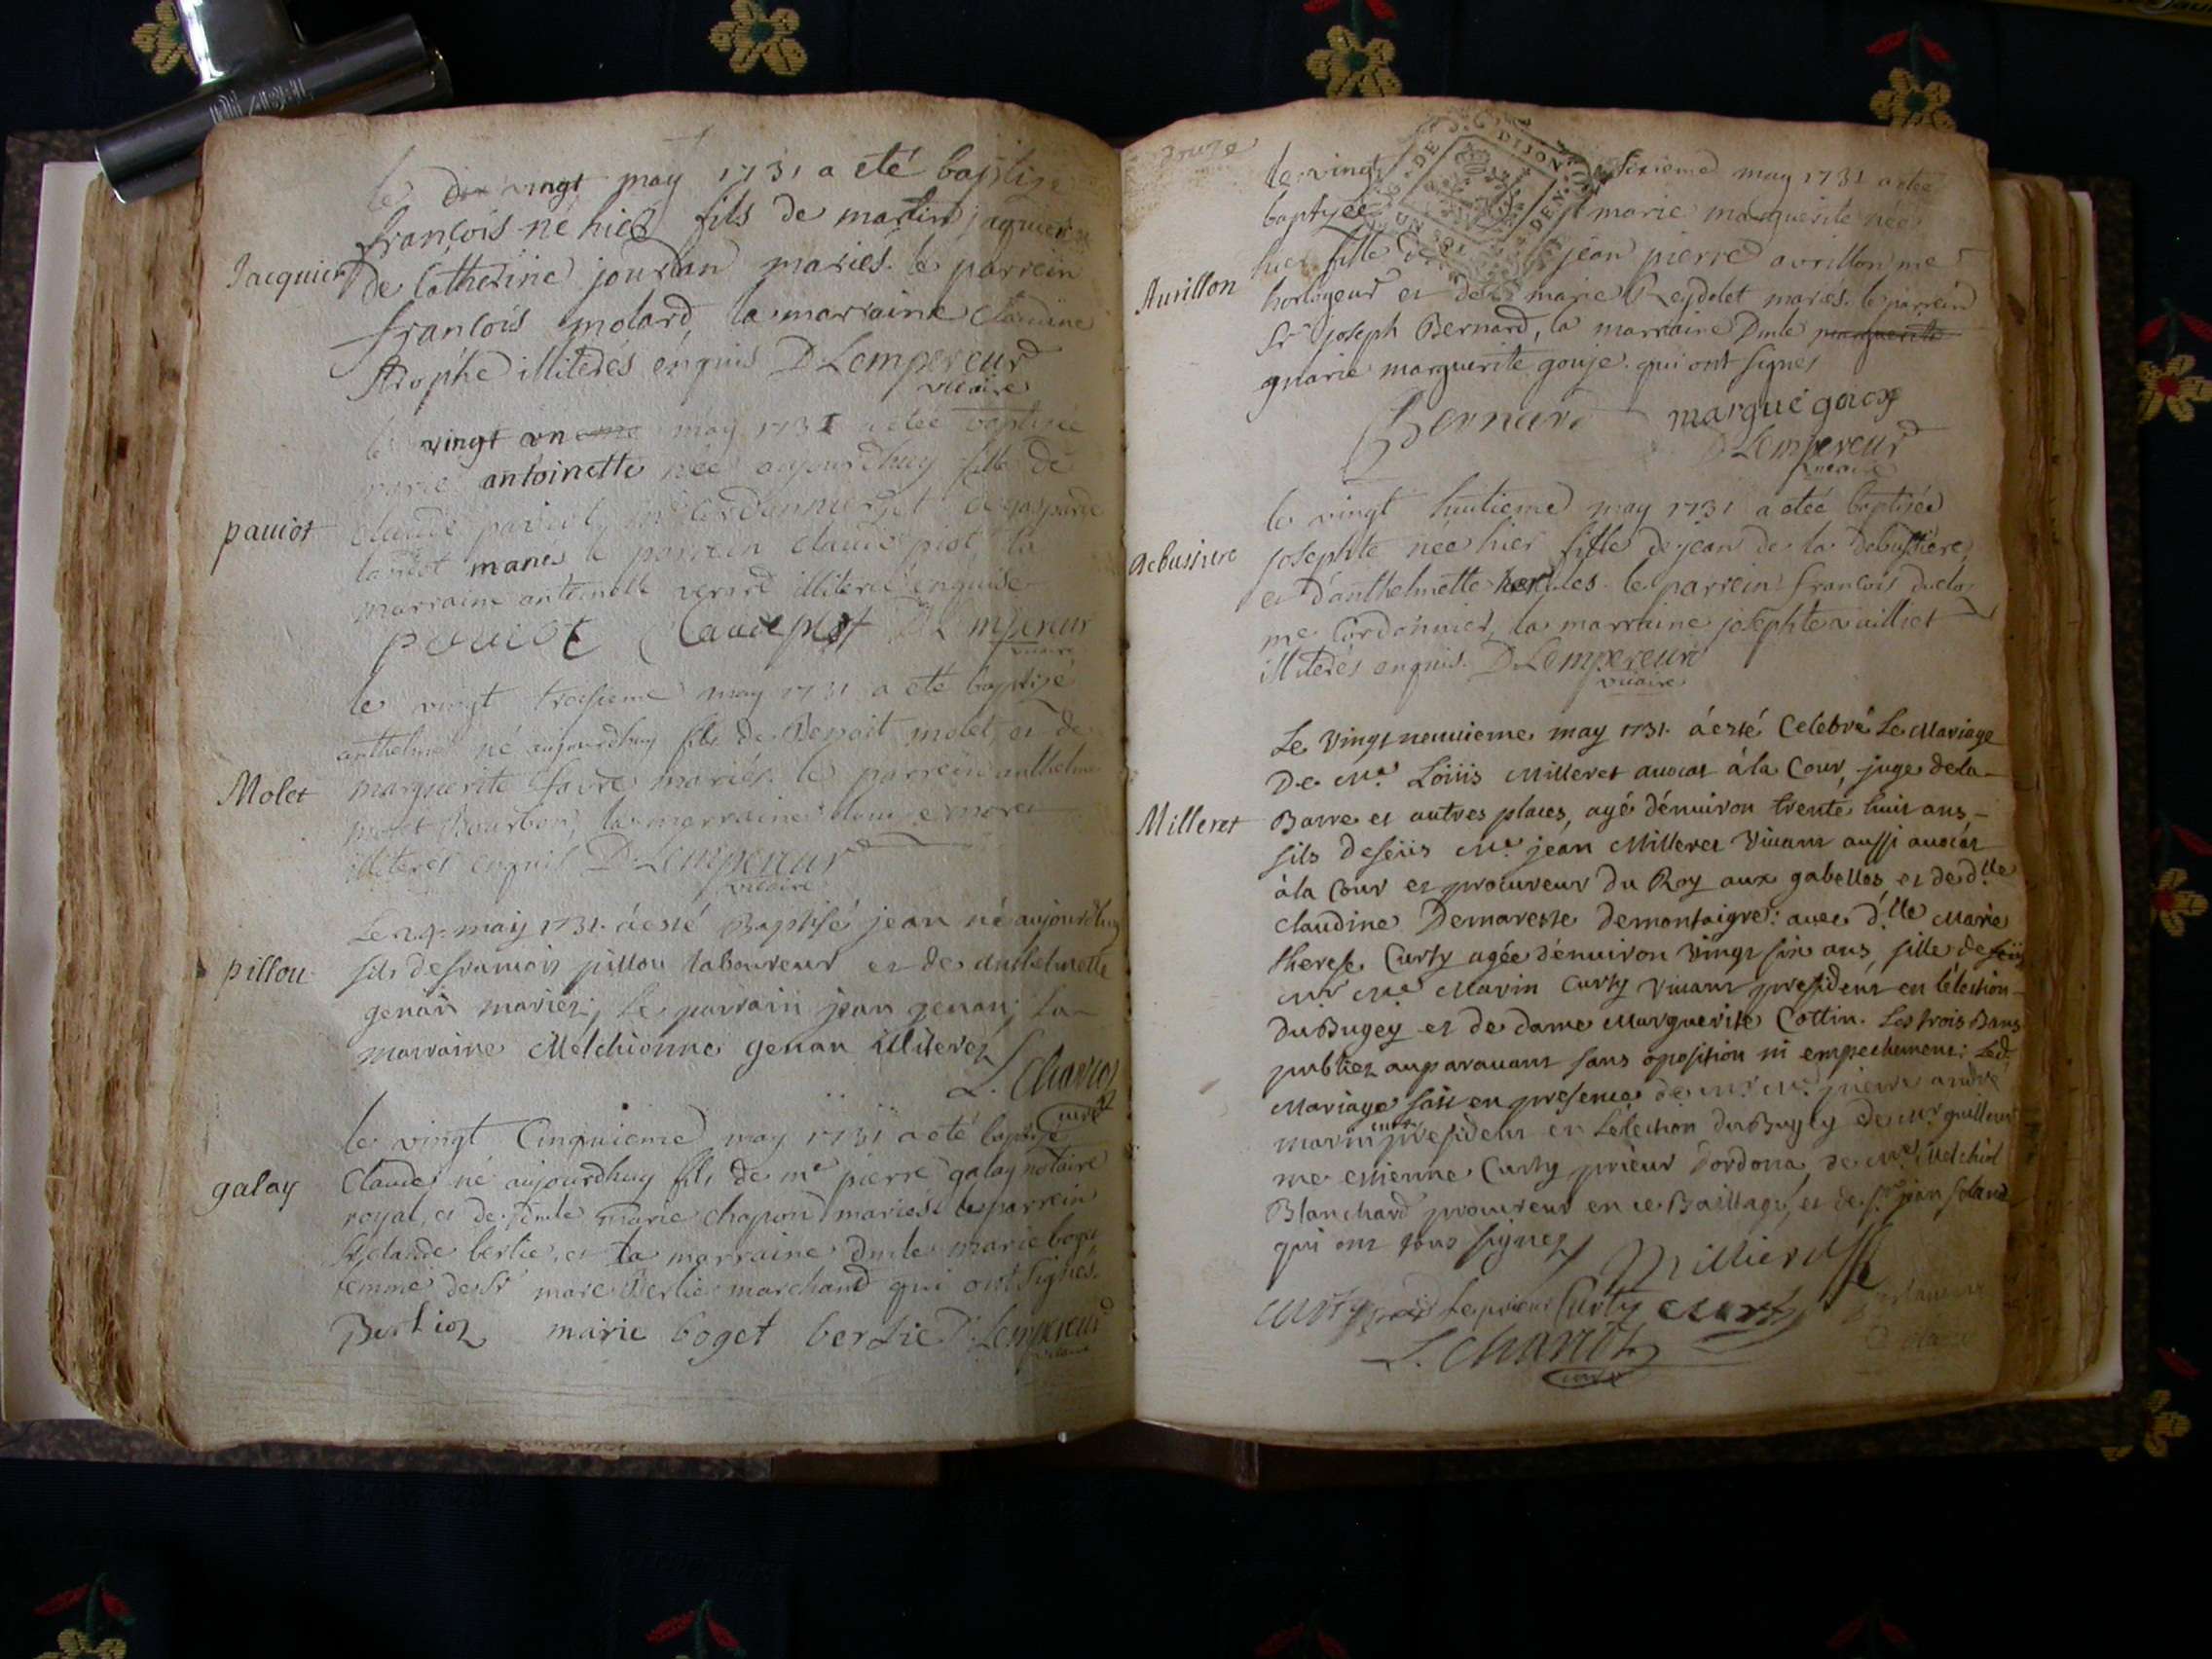 le vingt may 1731 a eté baptizé
françois né hier fils de martin jaquier
Jacquier
de Catherine jourdan mariés. le parrein
françois molard, la marraine Claudine
illiterés enquis D Lempereur
vicaire
le vingt un may 1731 a etée baptisée
marie antoinette née aujourdhuy fille de
paviot
claude paviot me Cordonnier et de gasparde
mariés le parrein claude piot la
marraine antoinette illiterée enquise
paviot Claude piot D Lempereur
vicaire
le vingt troisieme may 1731 a eté baptisé
anthelme né aujourdhuy fils de Benoit molet, et de
Molet
marguerite favre mariés. le parrein anthelme
molet Bourbon, la marraine
illiterés enquis D. Lempereur
vicaire
Le 24. may 1731. a esté Baptisé jean né aujourdhuy
pillou
fils de francois pillou laboureur et de anthelmette
genan mariez; Le parrain jean genan; La
marraine Melchionne genan illiterez
L. Charcot
curé
le vingt Cinquieme may 1731 a eté baptisé
galay
Claude né aujourdhuy fils de me pierre galay notaire
royal, et de dmle marie chapon mariés. le parrein
Sr claude berlie, et la marraine dmle marie boget
femme de Sr marc Berlie marchand qui ont signés.
Berlioz marie boget berlie D. Lempereur
vicaire
douze
DE DIJON
le vingt sixieme may 1731 a etée
baptisée marie marguerite née
hier fille de jean pierre avrillon me
Aurillon
horlogeur et de marie Reydelet mariés. le parrein
Sr joseph Bernard, la marraine Dmle marguerite
marie marguerite gouje. qui ont signés
Bernard margué
D Lempereur
vicaire
le vingt huitieme may 1731 a etée baptisée
josephte née hier fille de jean de la Debussiere
debussiere
et d'anthelmette le parrein françois duclos
me Cordonnier, la marraine josephte vuilliet
illiterés enquis. D Lempereur
vicaire
Le Vingt neuvieme may 1731. a esté Celebré Le Mariage
De Me. Loüis Milleret avocat à la Cour, juge de la
Milleret
Barre et autres places, agé d'environ trente huit ans,
fils de feüs Me. jean Milleret Vivant aussi avocat
à la Cour et procureur du Roy aux gabelles, et de dlle
claudine Demareste demontaigre: avec dlle Marie
therese Curty agée d'environ Vingt six ans, fille de feüs
mr me Marin Curty Vivant president en l'election
du Bugey et de dame Marguerite Cottin. Les trois Bans
publiez auparavant sans oposition ni empechement: Led.
Mariage fait en presence de mr me pierre andré
marin curty president en L'election du Bugey de mr guilleau
me estienne Curty prieur d'ordona, de Me Melchiol
Blanchard procureur en ce Baillage, et de Sr jean
qui ont tous signez Milleret
curty Le prieur Curty curty
L. Charcot
curé